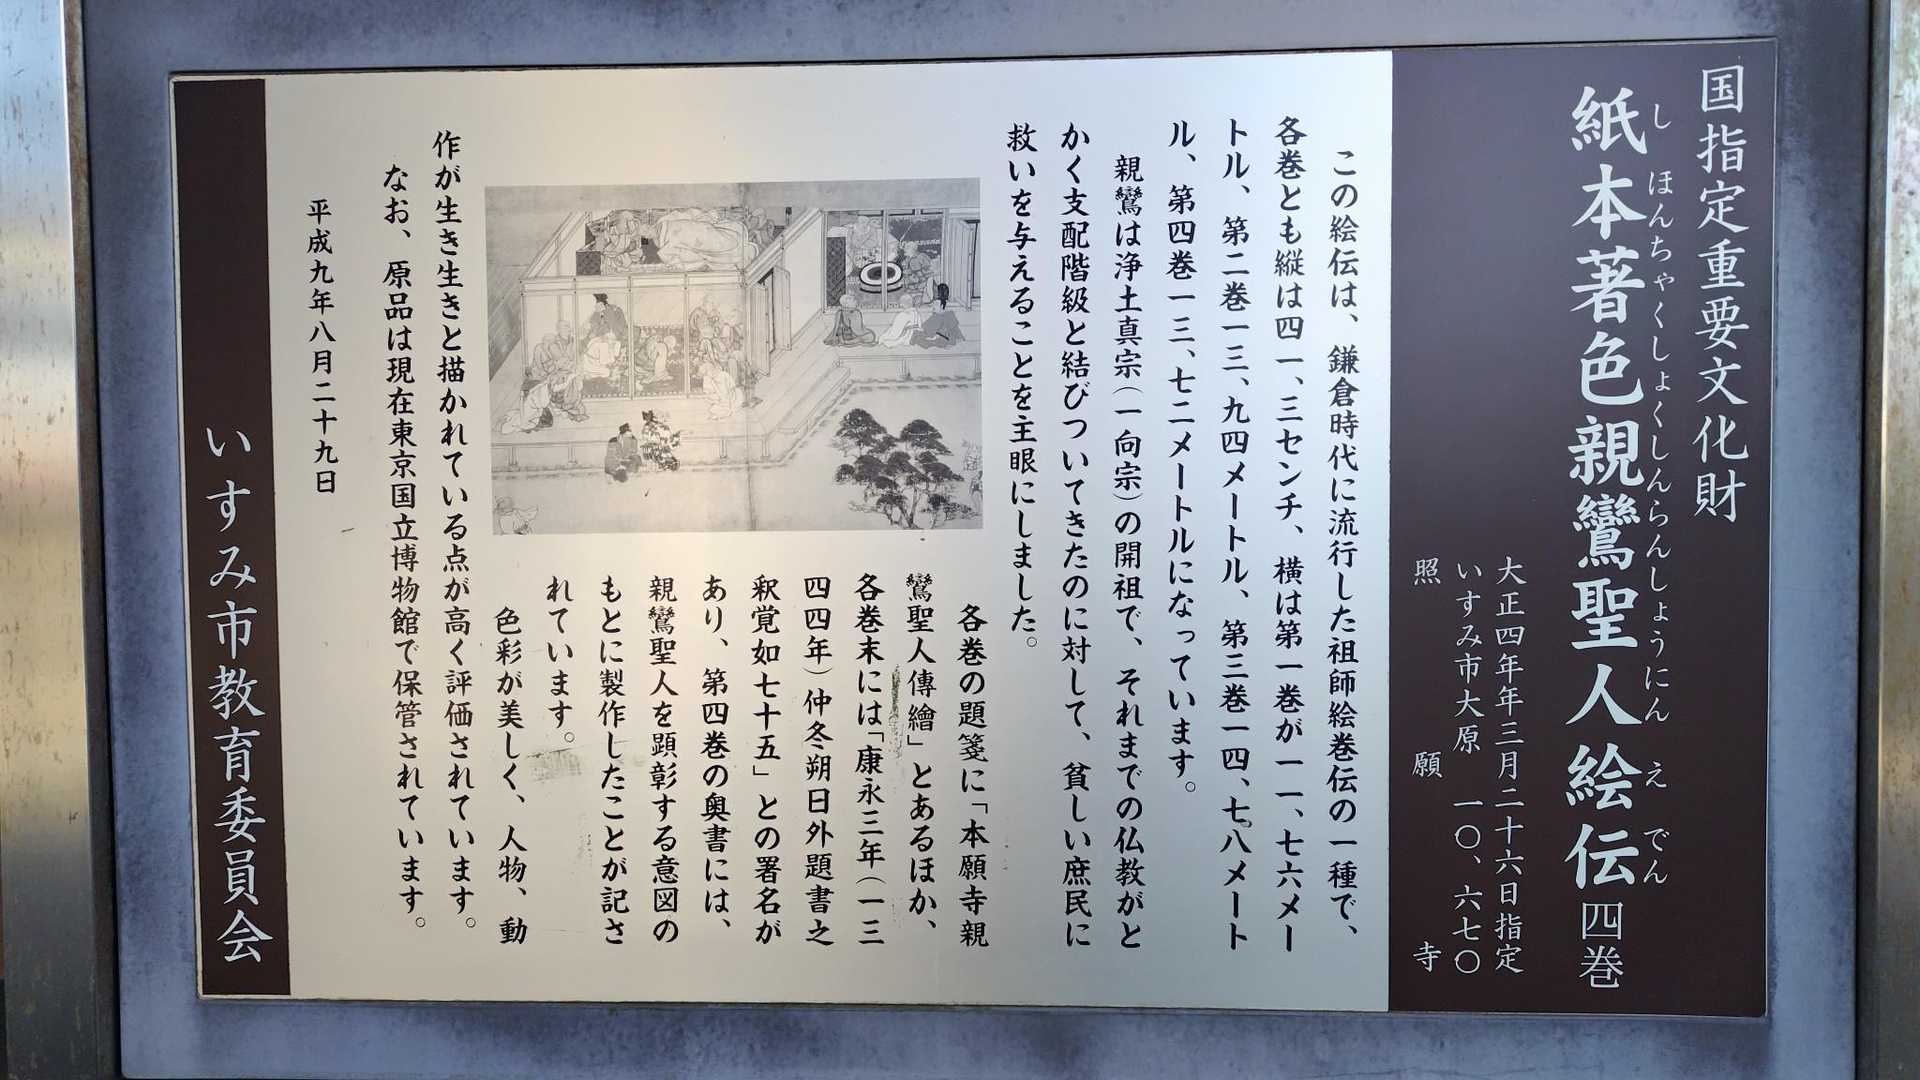 国指定重要文化財
しほんちゃくしょくしんらんしょうにんえでん
紙本著色親鸞聖人絵伝四巻
大正四年年三月二十六日指定
いすみ市大原 一〇、六七〇
照願寺
この絵伝は、鎌倉時代に流行した祖師絵巻伝の一種で、
各巻とも縦は四一、三センチ、横は第一巻が一一、七六メー
トル、第二巻一三、九四メートル、第三巻一四、七八メート
ル、第四巻一三、七二メートルになっています。
親鸞は浄土真宗(一向宗)の開祖で、それまでの仏教がと
かく支配階級と結びついてきたのに対して、貧しい庶民に
救いを与えることを主眼にしました。
各巻の題箋に「本願寺親
鸞聖人傳繪」とあるほか、
各巻末には「康永三年(一三
四四年)仲冬朔日外題書之
釈覚如七十五」との署名が
あり、第四巻の奥書には、
親鸞聖人を顕彰する意図の
もとに製作したことが記さ
れています。
色彩が美しく、人物、動
作が生き生きと描かれている点が高く評価されています。
なお、原品は現在東京国立博物館で保管されています。
平成九年八月二十九日
いすみ市教育委員会